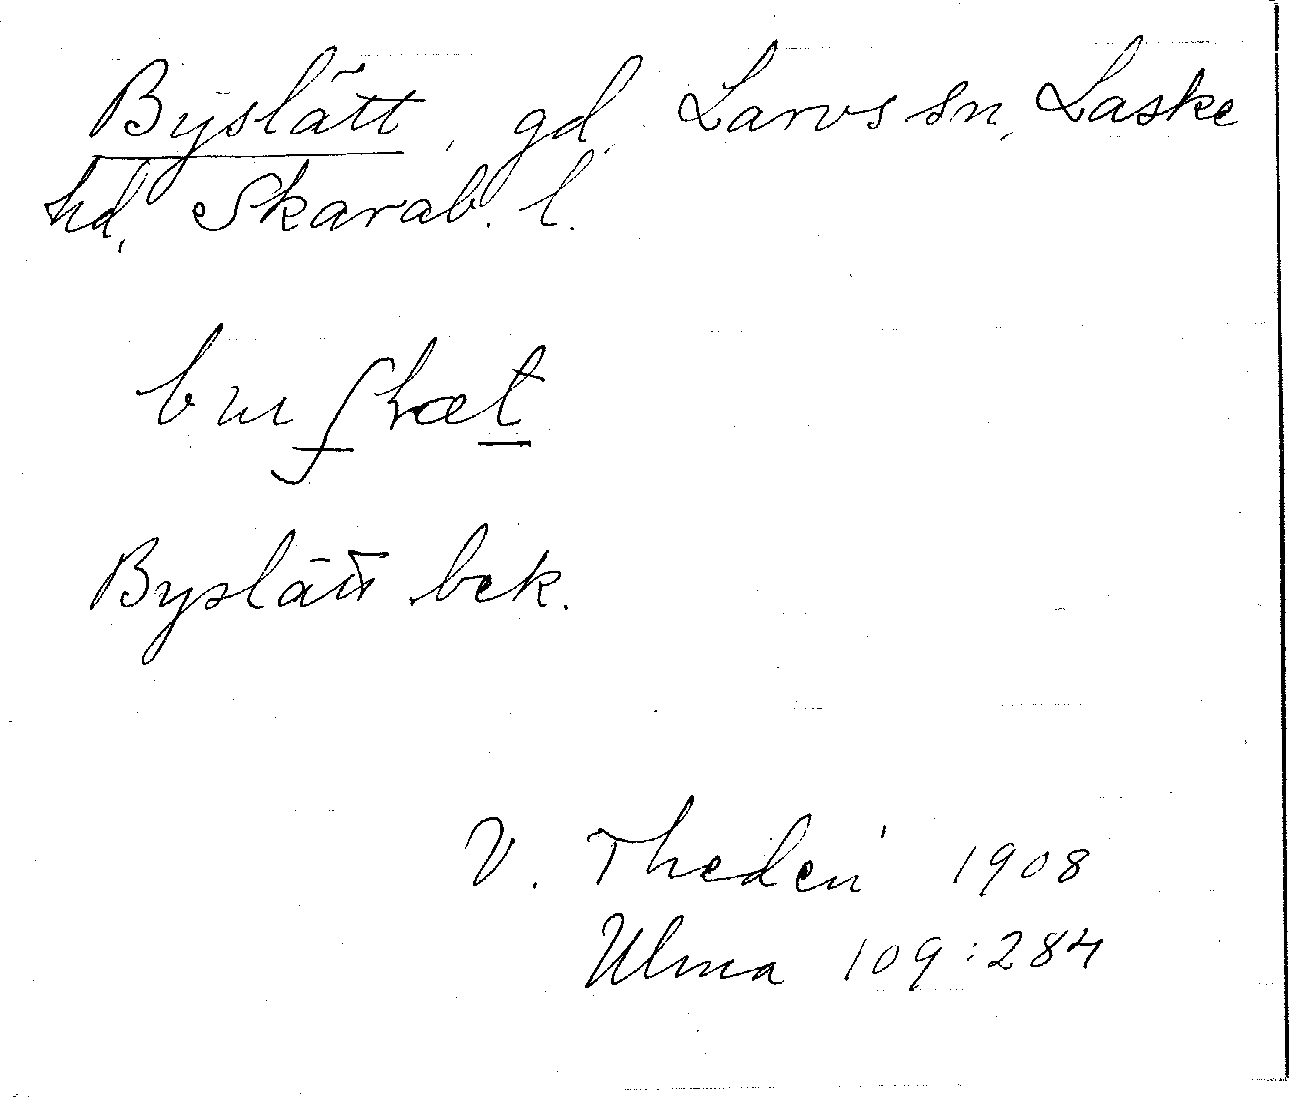 Byslätt, gd, Larvs sn, Laske
hd, Skarab. l.
Byslätt bek.
V. Thedén 1908
Ulma 109:284